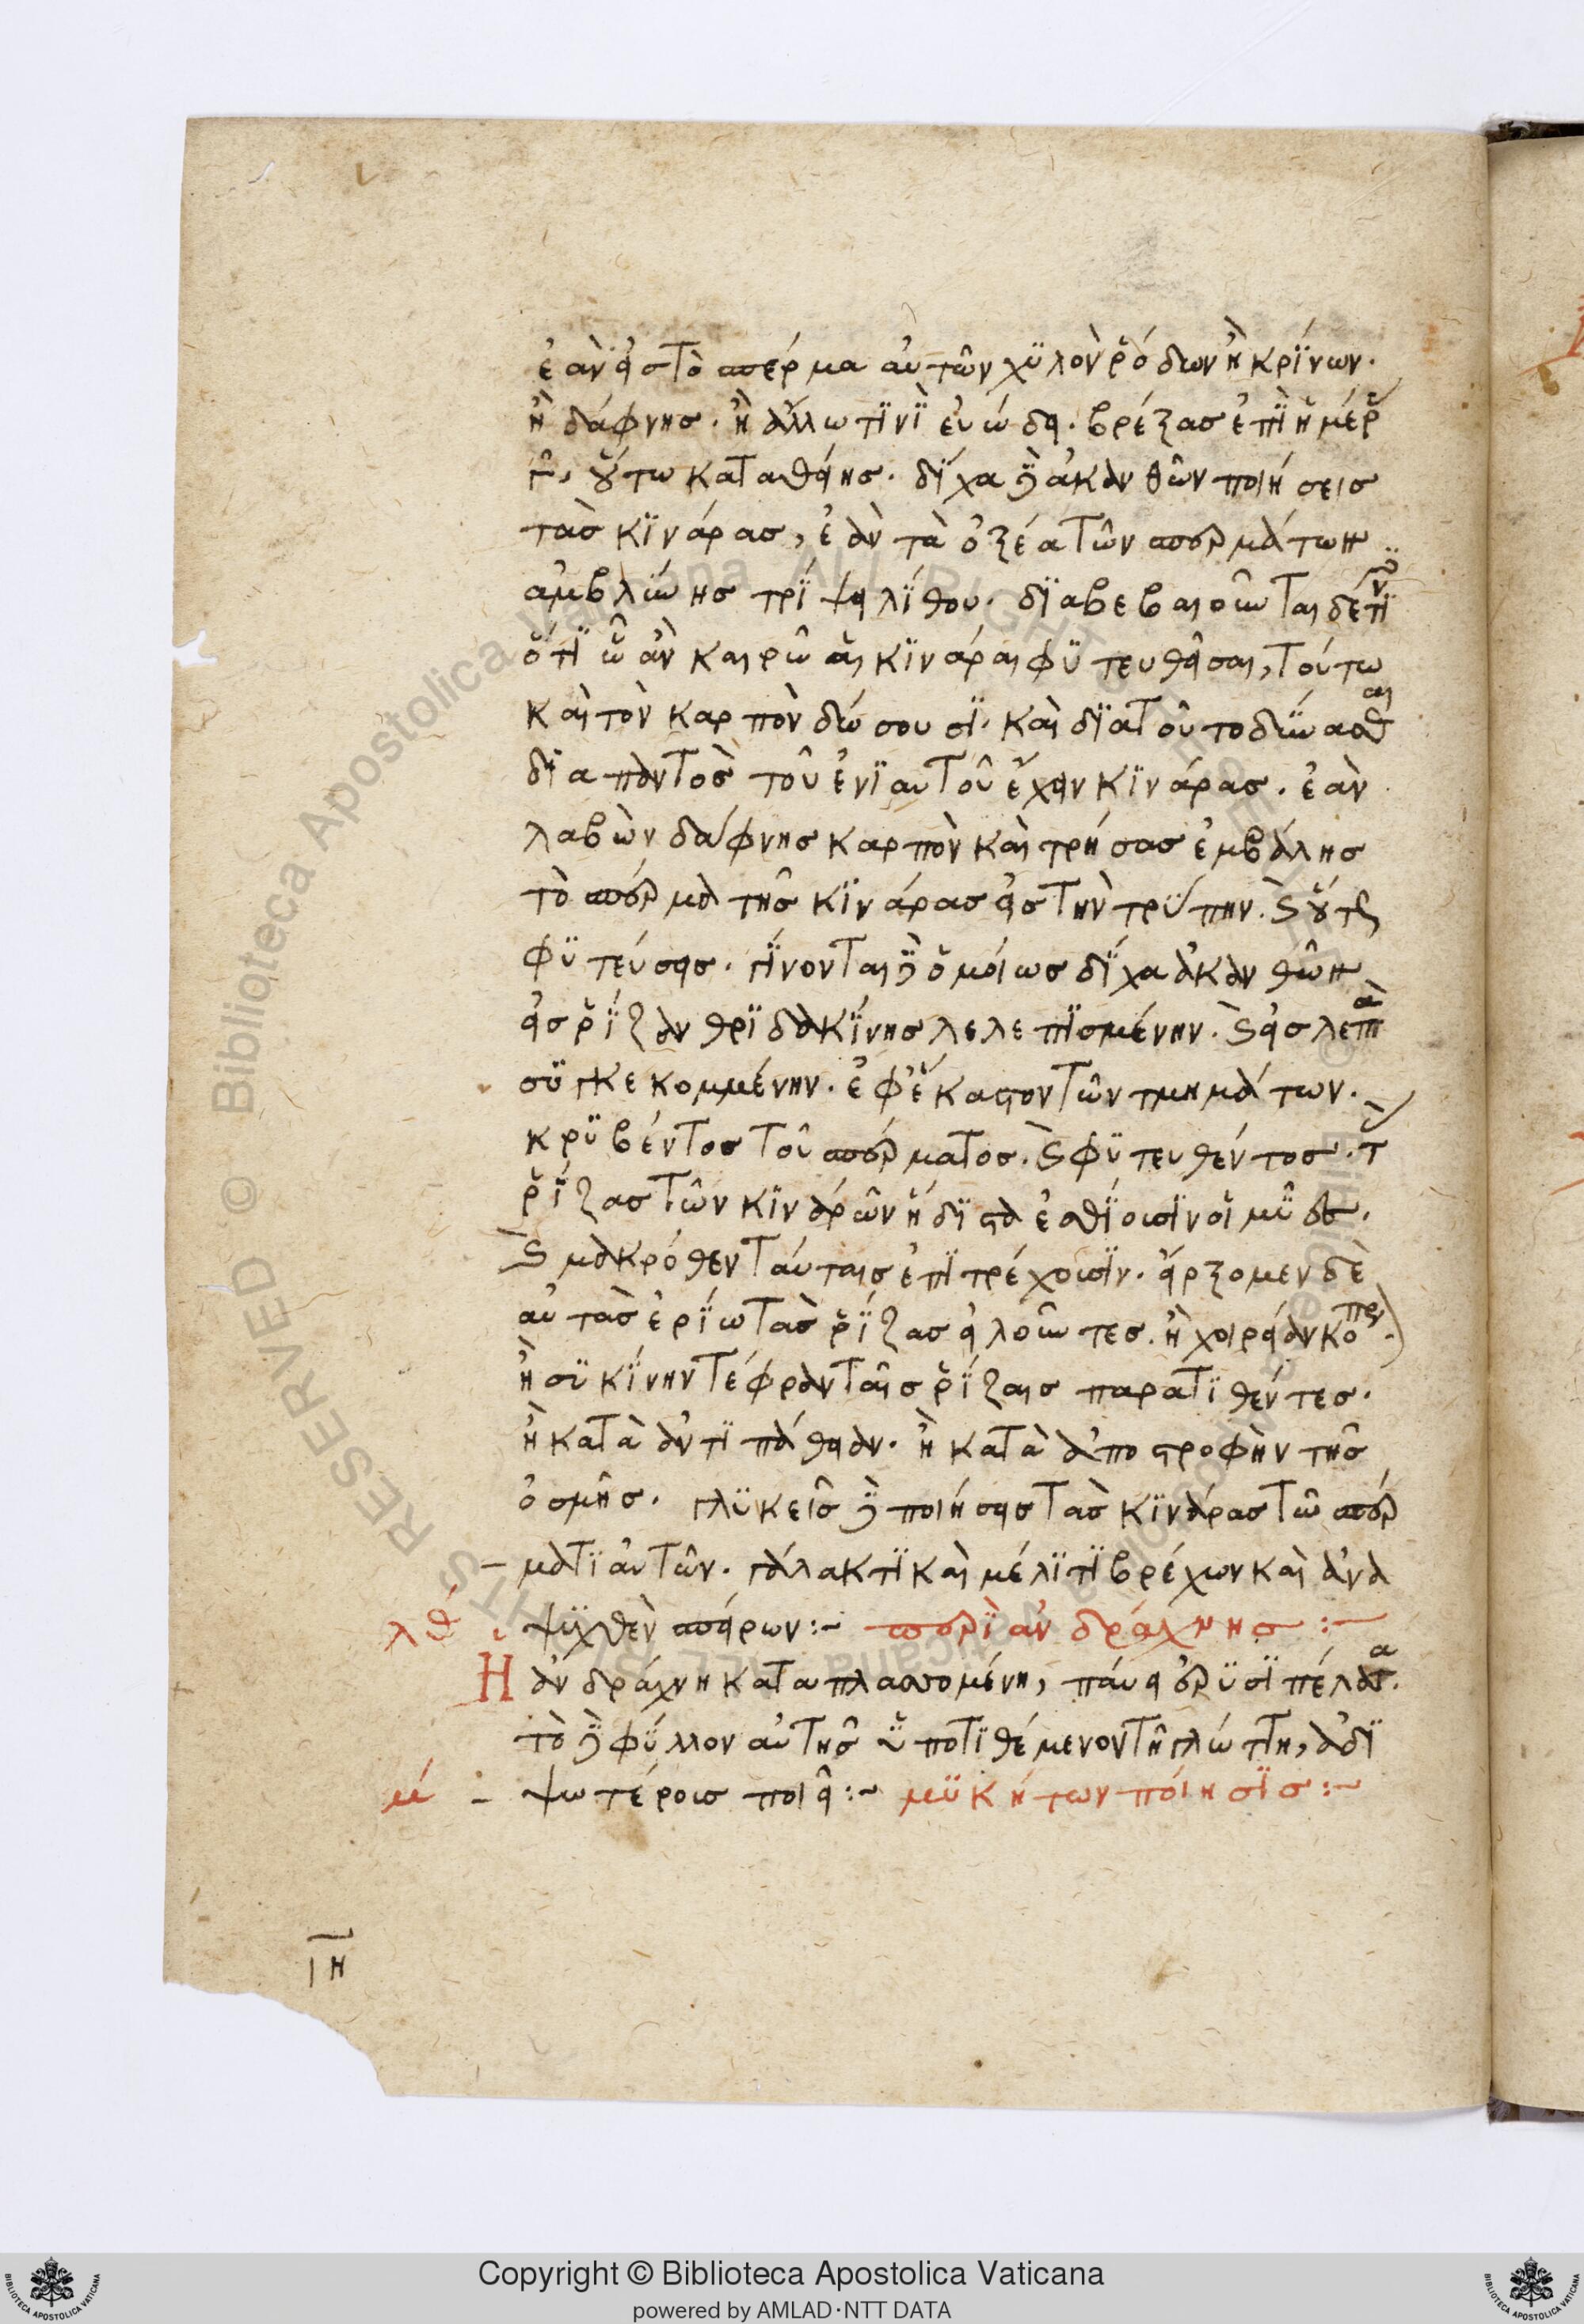 ἐὰν εἰς τὸ σπέρμα αὐτῶν χϋλὸν ῥόδων ἢ κρίνων.
ἢ δάφνης. ἢ ἄλλω τϊνϊ εὐώδει. βρέξας ἐπῒ ἡμέρ
γ̑, οὕτω καταθείης. δίχα δὲ ἀκανθῶν ποιήσεις
τὰσ κϊνάρας, ἐὰν τὰ ὀξέα τῶν σπερμάτων
ἀμβλϋώης τρίψει λίθου. δϊαβεβαιοῦται δέ τϊ
ὅτϊ ὧ ἂν καιρῶ αἱ κϊνάραι φϋτευθεῖσαι, τούτω
καὶ τὸν καρπὸν δώσουσϊ. καὶ δϊατοῦτο δϋνασθαι
δϊαπαντὸς τοῦ ἐνϊαυτοῦ ἔχειν κϊνάρας. ἐὰν
λαβὼν δάφνης καρπὸν καὶ τρήσας ἐμβάλης
τὸ σπέρμα τῆς κϊνάρας εἰς τὴν τρύπην. καὶ οὕτως
φϋτεύσεις. γίνονται δὲ ὁμοίως δίχα ἀκανθῶν
εἰς ῥίζαν θρϊδακίνης λελεπϊσμένην. καὶ εἰς λεπτὰ
σϋγκεκομμένην. ἐφ' ἕκαστον τῶν τμημάτων.
κρϋβέντος τοῦ σπέρματος. καὶ φϋτευθέντος. τ
ῥίζας τῶν κϊναρῶν ἥδϊστα ἐσθίουσϊν οἱ μῦες.
καὶ μακρόθεν ταύταις ἐπϊτρέχουσϊν. εἴρξομεν δὲ
αὐτὰς ἐρίω τὰς ῥίζας εἰλοῦντες. ἢ χοιρείαν κόπρ
ἢ σϋκίνην τέφραν ταῖς ῥίζαις παρατϊθέντες.
ἢ κατὰ ἀντϊπάθειαν. ἢ κατὰ ἀποστροφὴν τῆς
ὀσμῆς. γλϋκεῖς δὲ ποιήσεις τὰς κϊνάρας τῶ σπέρ
ματϊ αὐτῶν. γάλακτϊ καὶ μέλϊτϊ βρέχων καὶ ἀνα
λθ ψϋχθὲν σπείρων:~ περῒ ἀνδράχνης:~
Ἡ ἀνδράχνη καταπλασσομένη, παύει ἐρϋσϊπέλατα.
τὸ δὲ φύλλον αὐτῆς ὑποτϊθέμενον τῆ γλώττη, ἀδϊ
μ ψωτέρους ποιεῖ:~ μϋκήτων ποίησϊς:~
ιη
Copyright © Biblioteca Apostolica Vaticana
powered by AMLAD·NTT DATA